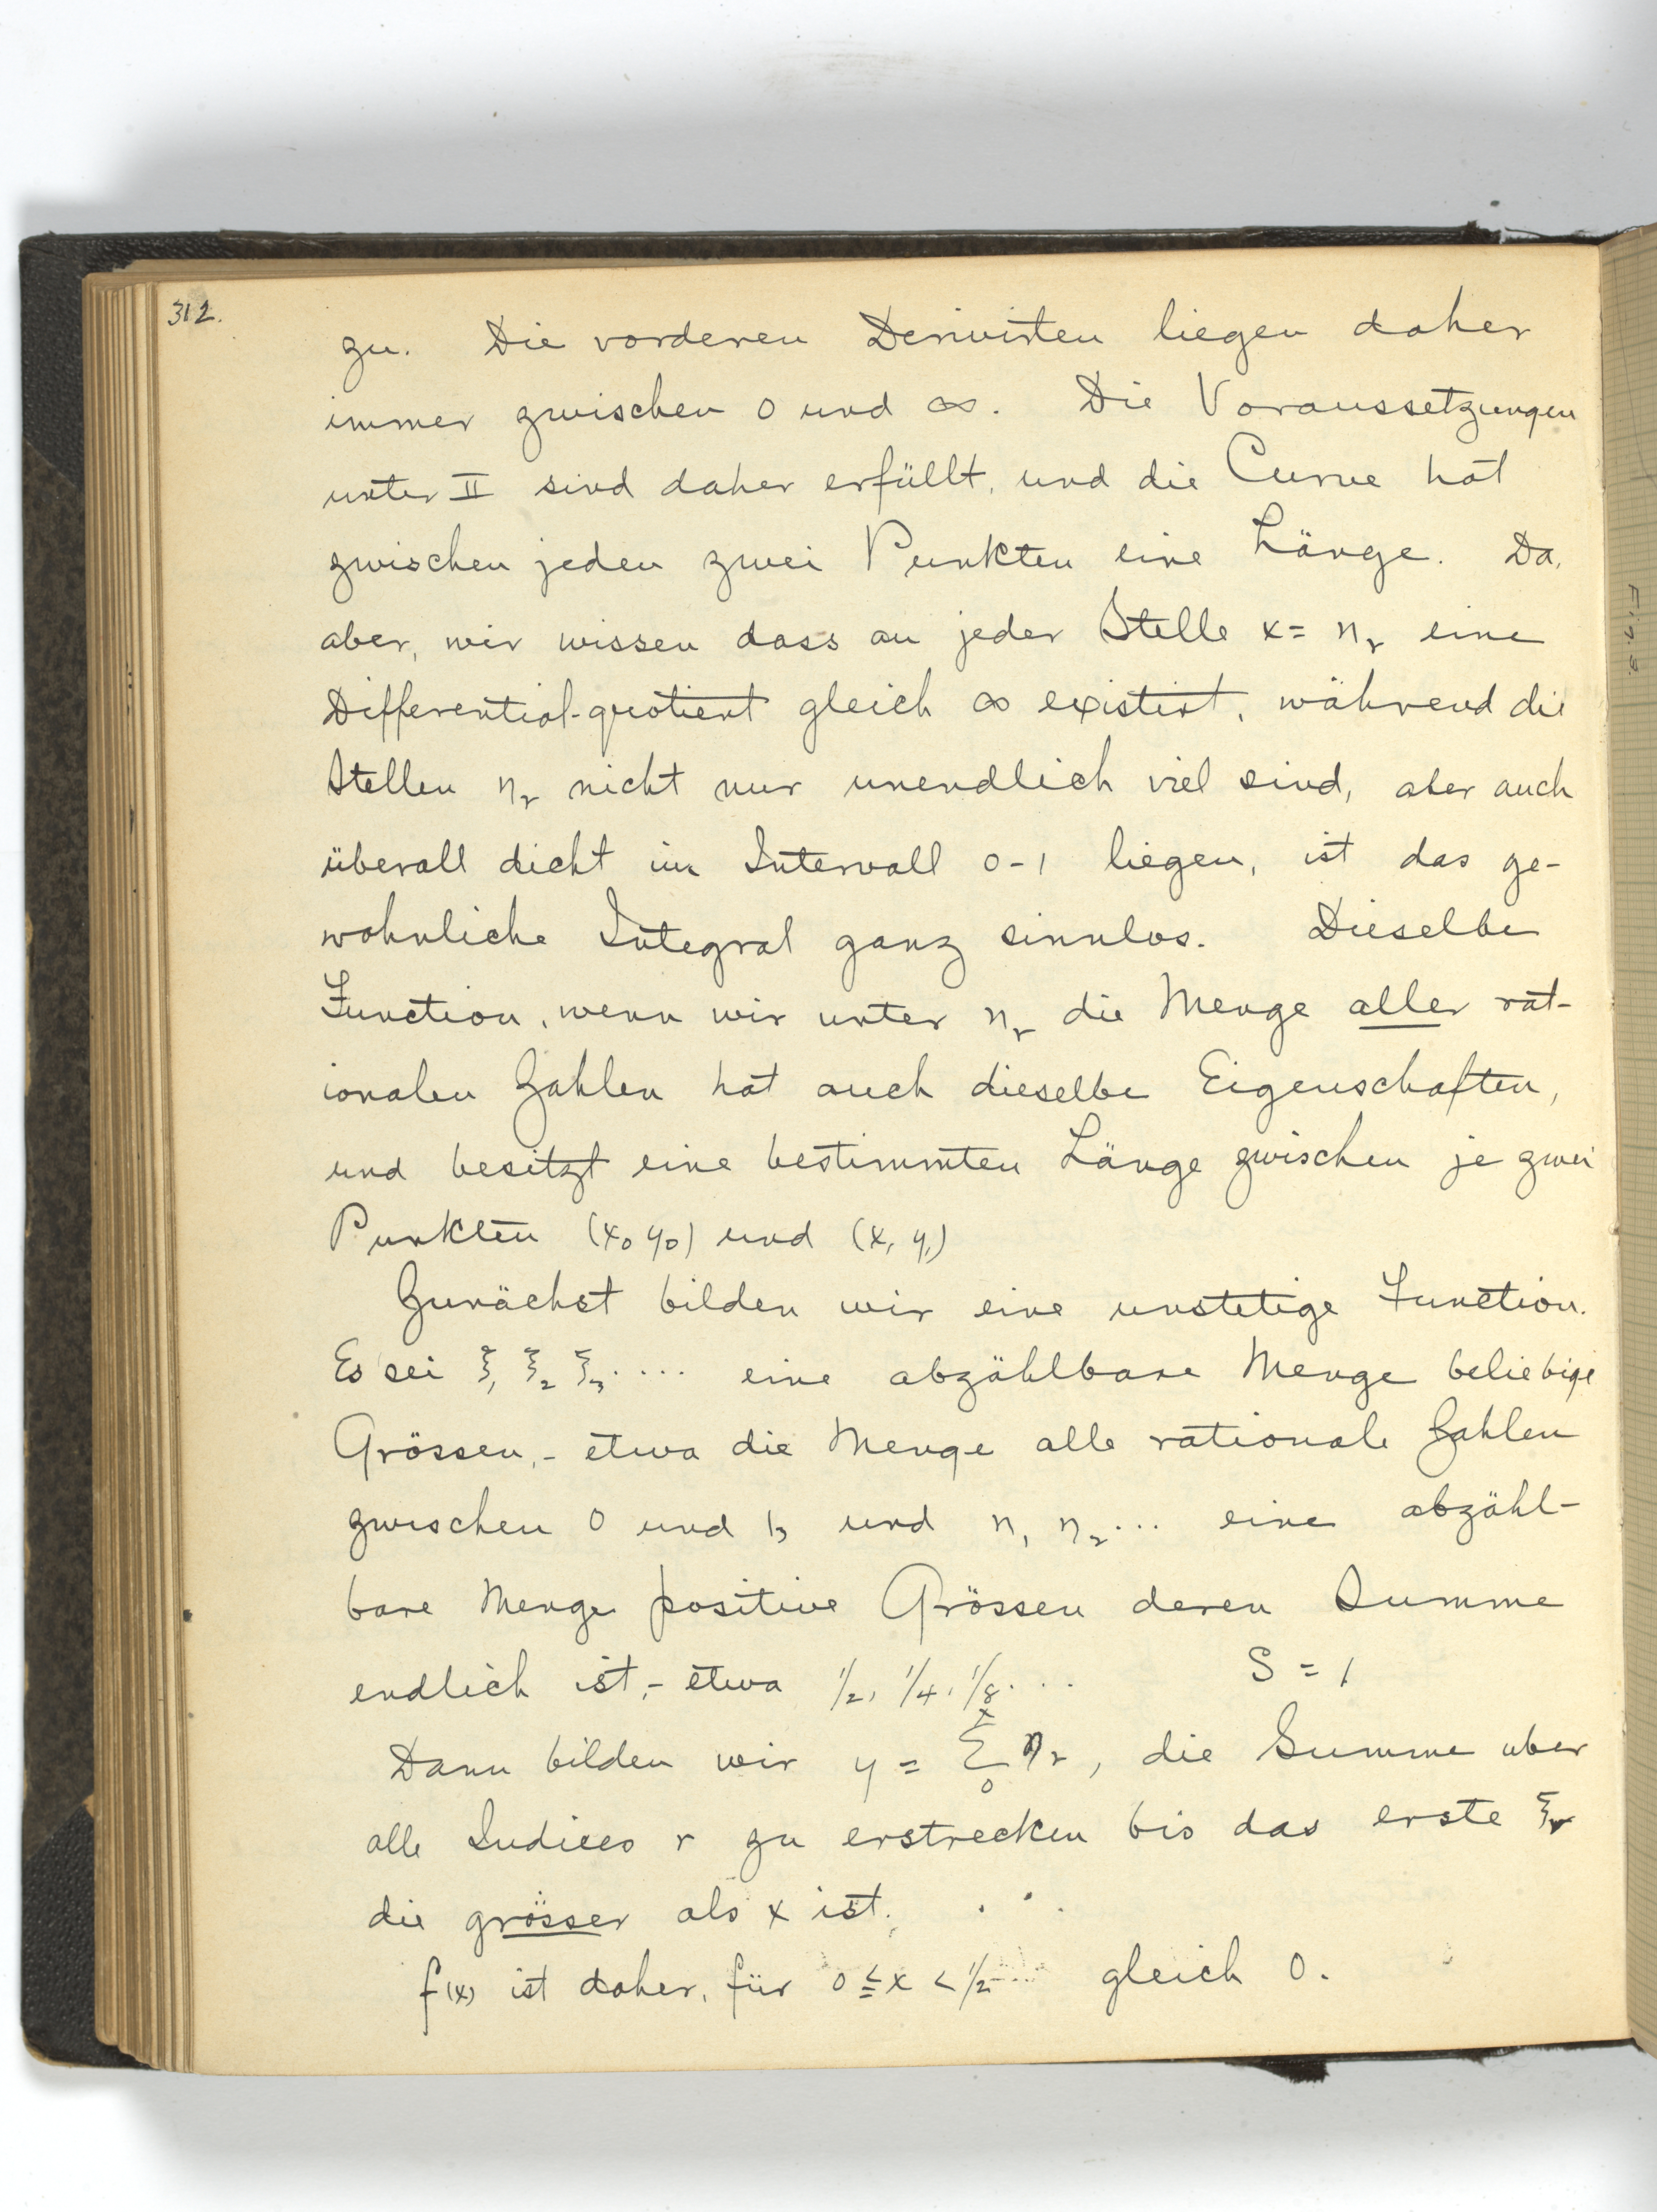 312.
zu. Die vorderen Derivirten liegen daher
immer zwischen 0 und ∞. Die Voraussetzungen
unter II sind daher erfüllt, und die Curve hat
zwischen jeden zwei Punkten eine Länge. Da,
aber, wir wissen dass an jeder Stelle x = η_r eine
Differential-quotient gleich ∞ existirt, während die
Stellen η_r nicht nur unendlich viel sind, aber auch
überall dicht im Intervall 0-1 liegen, ist das ge-
wohnliche Integral ganz sinnlos. Dieselbe
Function, wenn wir unter η_r die Menge aller rat-
ionalen Zahlen hat auch dieselbe Eigenschaften,
und besitzt eine bestimmten Länge zwischen je zwei
Punkten (x₀ y₀) und (x₁ y₁)
Zunächst bilden wir eine unstetige Function.
Es sei ξ₁ ξ₂ ξ₃.... eine abzählbare Menge beliebige
Grössen,- etwa die Menge alle rationale Zahlen
zwischen 0 und 1, und η₁ η₂... eine abzähl-
bare Menge positive Grössen deren Summe
endlich ist,- etwa 1/2, 1/4, 1/8... S = 1
Dann bilden wir y = Σ₀ˣ η_r, die Summe uber
alle Indices r zu erstrecken bis das erste ξ_r
die grösser als x ist.
f(x) ist daher, für 0 ≦ x < 1/2 gleich 0.